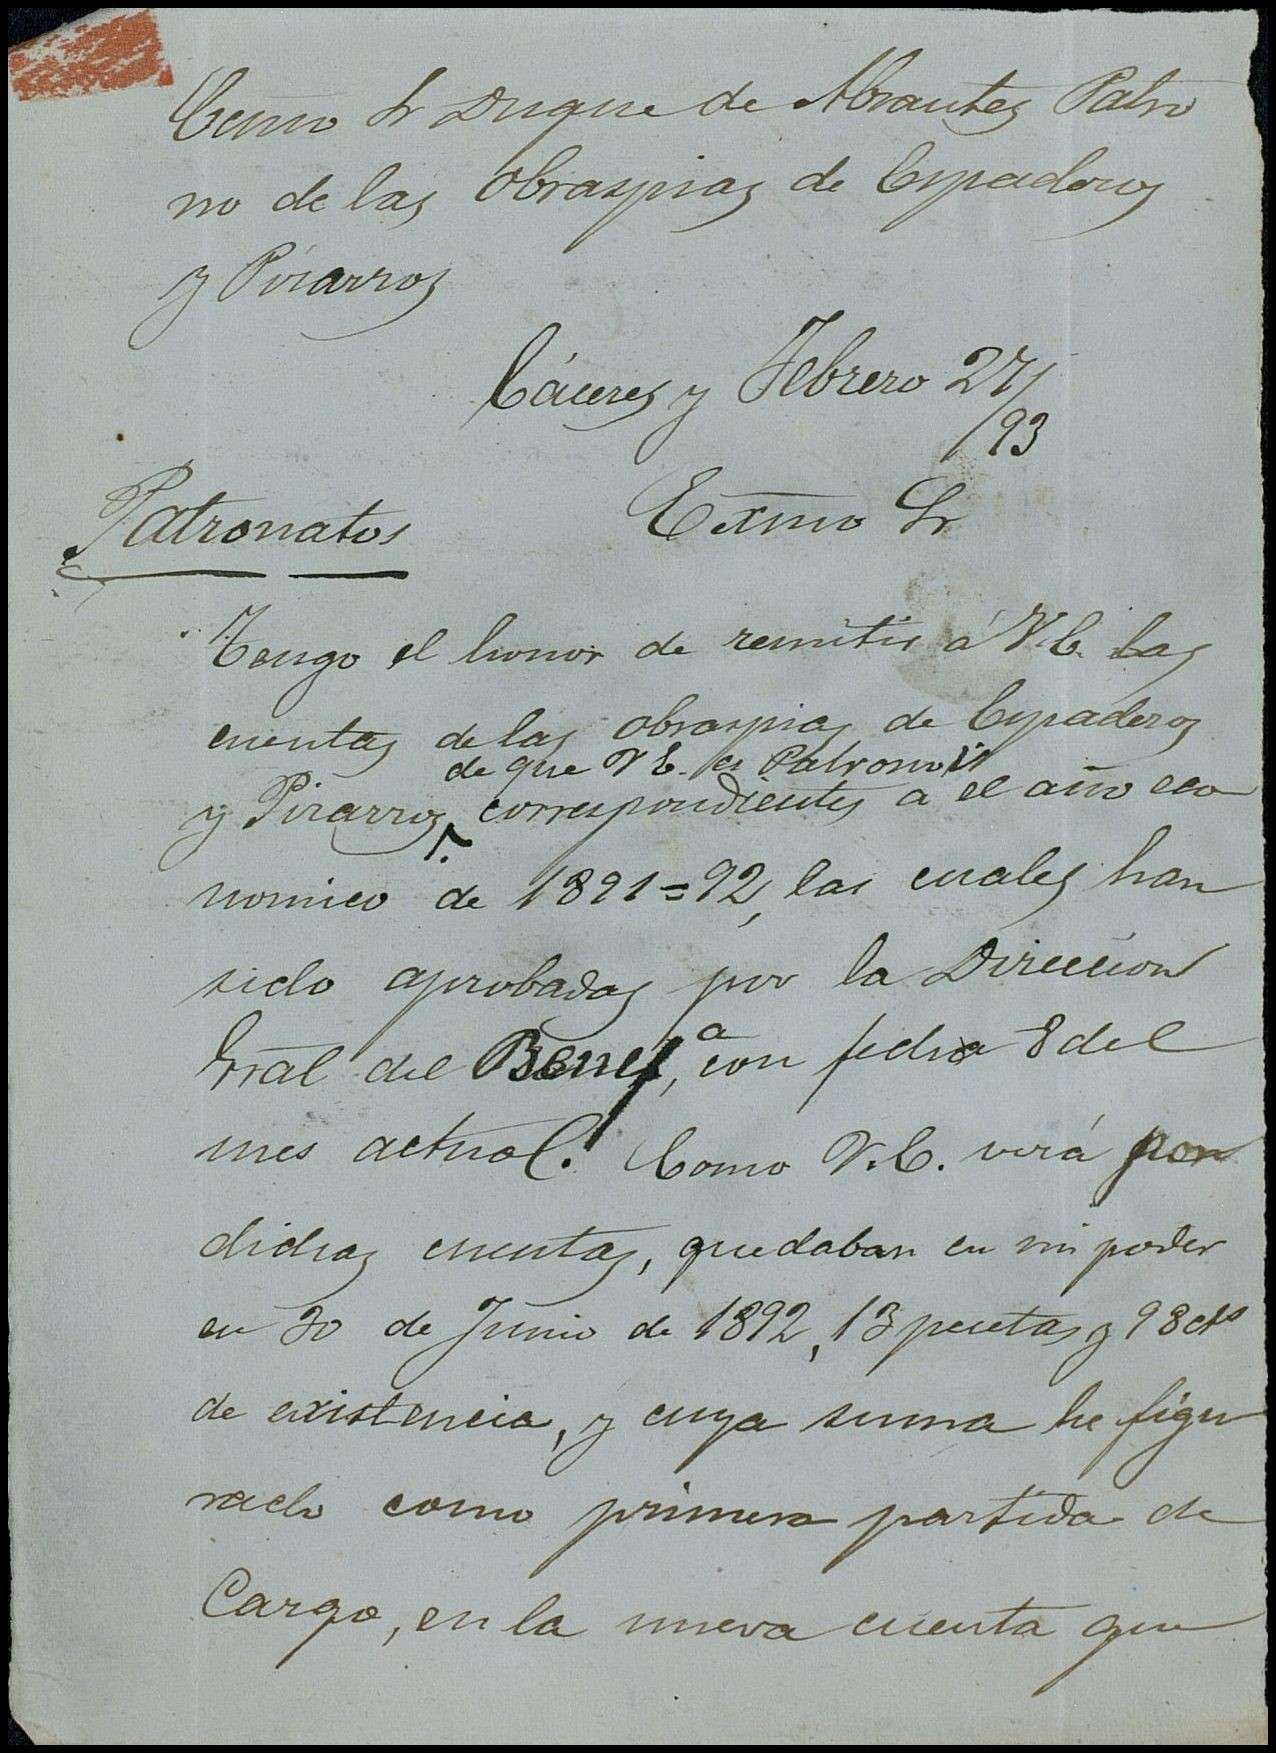 Excmo Sr Duque de Abrantes Patro
no de las obraspias de Espaderos
y Pizarros
Cáceres y Febrero 27/
/93
Patronatos
Exmo Sr
Tengo el honor de remitir á V.E. las
cuentas de las obraspias de Espaderos
de que V E. es Patrono
y Pizarros, correspondientes a el año eco
nomico de 1891=92, las cuales han
sido aprobadas por la Direccion
Gral del Benefa, con fecha 8 del
mes actual. Como V.E. verá por
dichas cuentas, quedaban en mi poder
en 30 de Junio de 1892, 13 pesetas y 98 cts
de existencia, y cuya suma he figu
rado como primera partida de
Cargo, en la nueva cuenta que